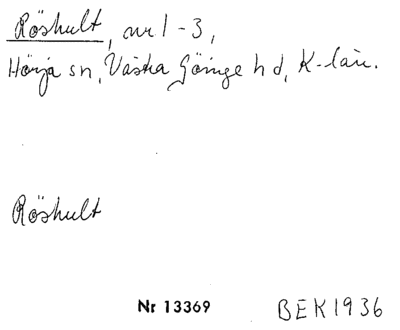 Röshult, nr 1-3,
Hörja sn, Västra Göinge hd, K-län.
Röshult
Nr 13369
BEK1936